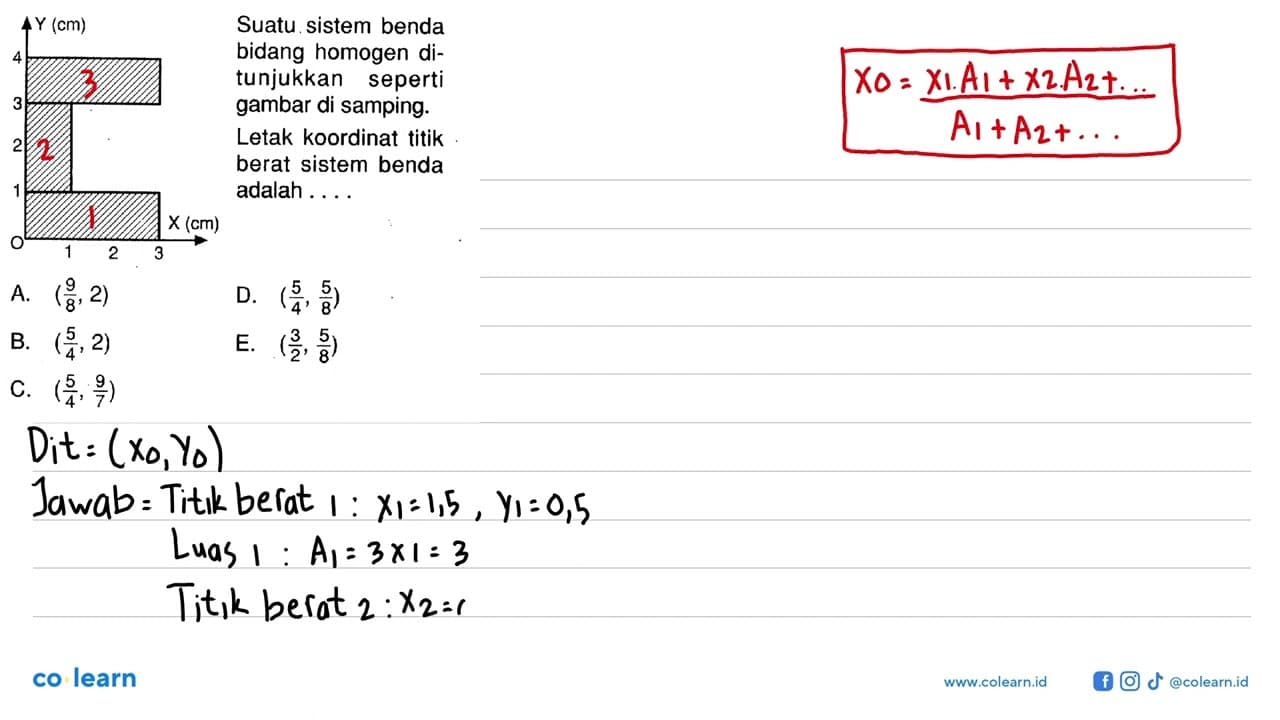 Y (cm)
4
3
2
1
O
1 2 3
X (cm)
3
2
1
Suatu sistem benda
bidang homogen di-
tunjukkan seperti
gambar di samping.
Letak koordinat titik
berat sistem benda
adalah . . . .
A. (9/8, 2)
B. (5/4, 2)
C. (5/4, 9/7)
D. (5/4, 5/8)
E. (3/2, 5/8)
X0 = X1.A1 + X2.A2 + ...
A1 + A2 + ...
Dit = (X0, Y0)
Jawab = Titik berat 1 : X1 = 1,5 , Y1 = 0,5
Luas 1 : A1 = 3 x 1 = 3
Titik berat 2 : X2 =
co learn
www.colearn.id
@colearn.id